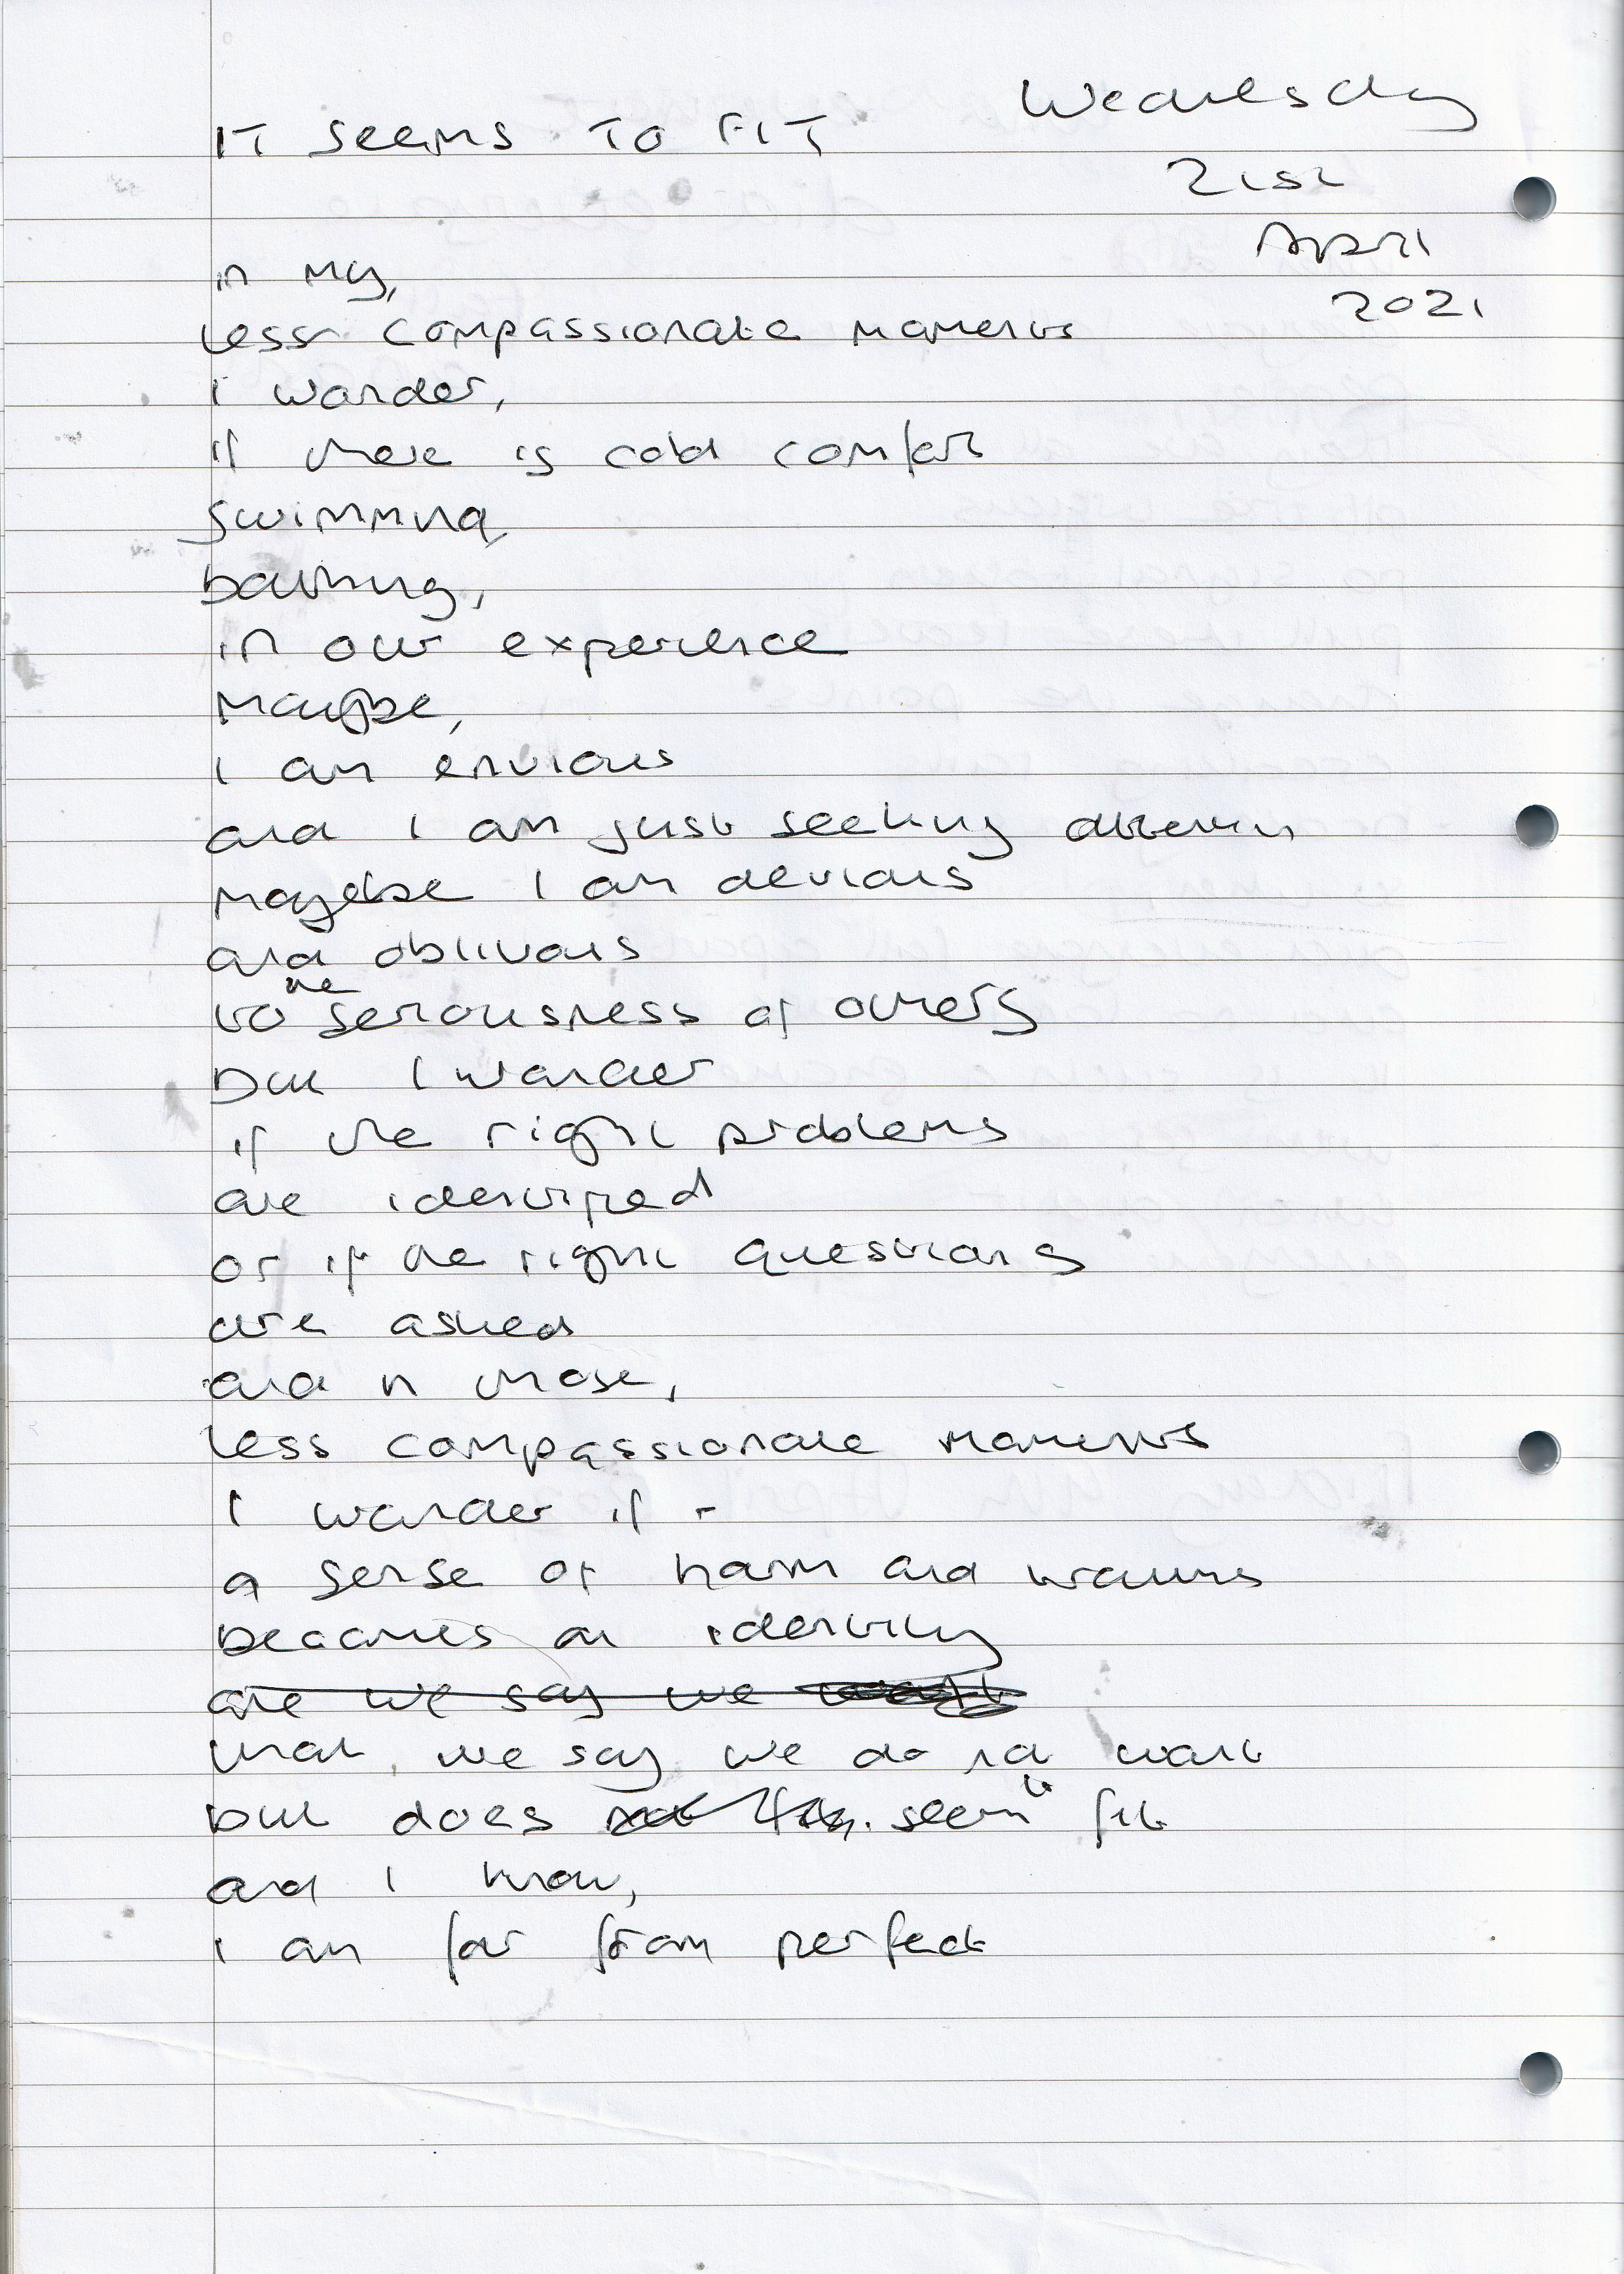 IT SEEMS TO FIT
Wednesday
21st
April
2021
in my,
less compassionate moments
I wonder,
if there is cold comfort
swimming,
bathing,
in our experience
maybe,
I am envious
and I am just seeking attention
maybe I am devious
and oblivious
to the seriousness of others
but I wonder
if the right problems
are identified
or if the right questions
are asked
and in those,
less compassionate moments
I wonder if -
a sense of harm and trauma
becomes an identity
are we say we
that we say we do not want
but does seem to fit
and I know,
I am far from perfect